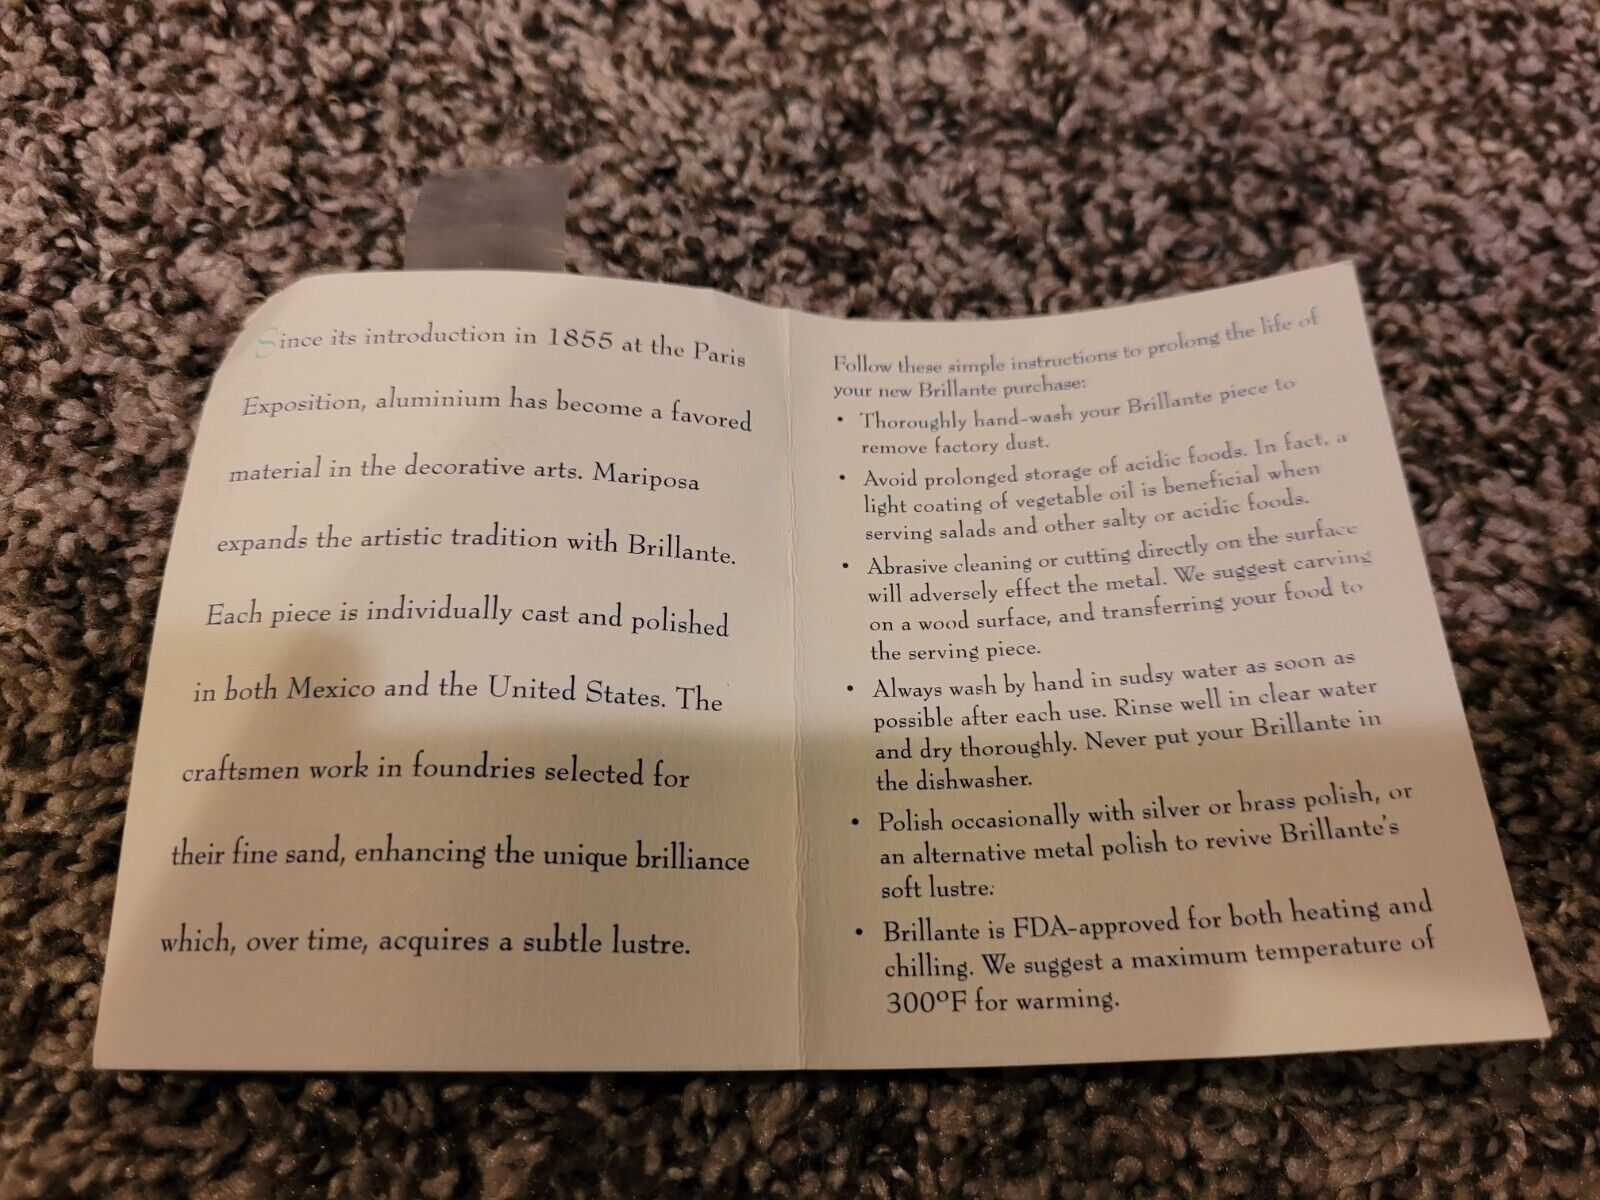 Since its introduction in 1855 at the Paris
Exposition, aluminium has become a favored
material in the decorative arts. Mariposa
expands the artistic tradition with Brillante.
Each piece is individually cast and polished
in both Mexico and the United States. The
craftsmen work in foundries selected for
their fine sand, enhancing the unique brilliance
which, over time, acquires a subtle lustre.
Follow these simple instructions to prolong the life of
your new Brillante purchase:
• Thoroughly hand-wash your Brillante piece to
remove factory dust.
• Avoid prolonged storage of acidic foods. In fact, a
light coating of vegetable oil is beneficial when
serving salads and other salty or acidic foods.
• Abrasive cleaning or cutting directly on the surface
will adversely effect the metal. We suggest carving
on a wood surface, and transferring your food to
the serving piece.
• Always wash by hand in sudsy water as soon as
possible after each use. Rinse well in clear water
and dry thoroughly. Never put your Brillante in
the dishwasher.
• Polish occasionally with silver or brass polish, or
an alternative metal polish to revive Brillante's
soft lustre.
• Brillante is FDA-approved for both heating and
chilling. We suggest a maximum temperature of
300ºF for warming.